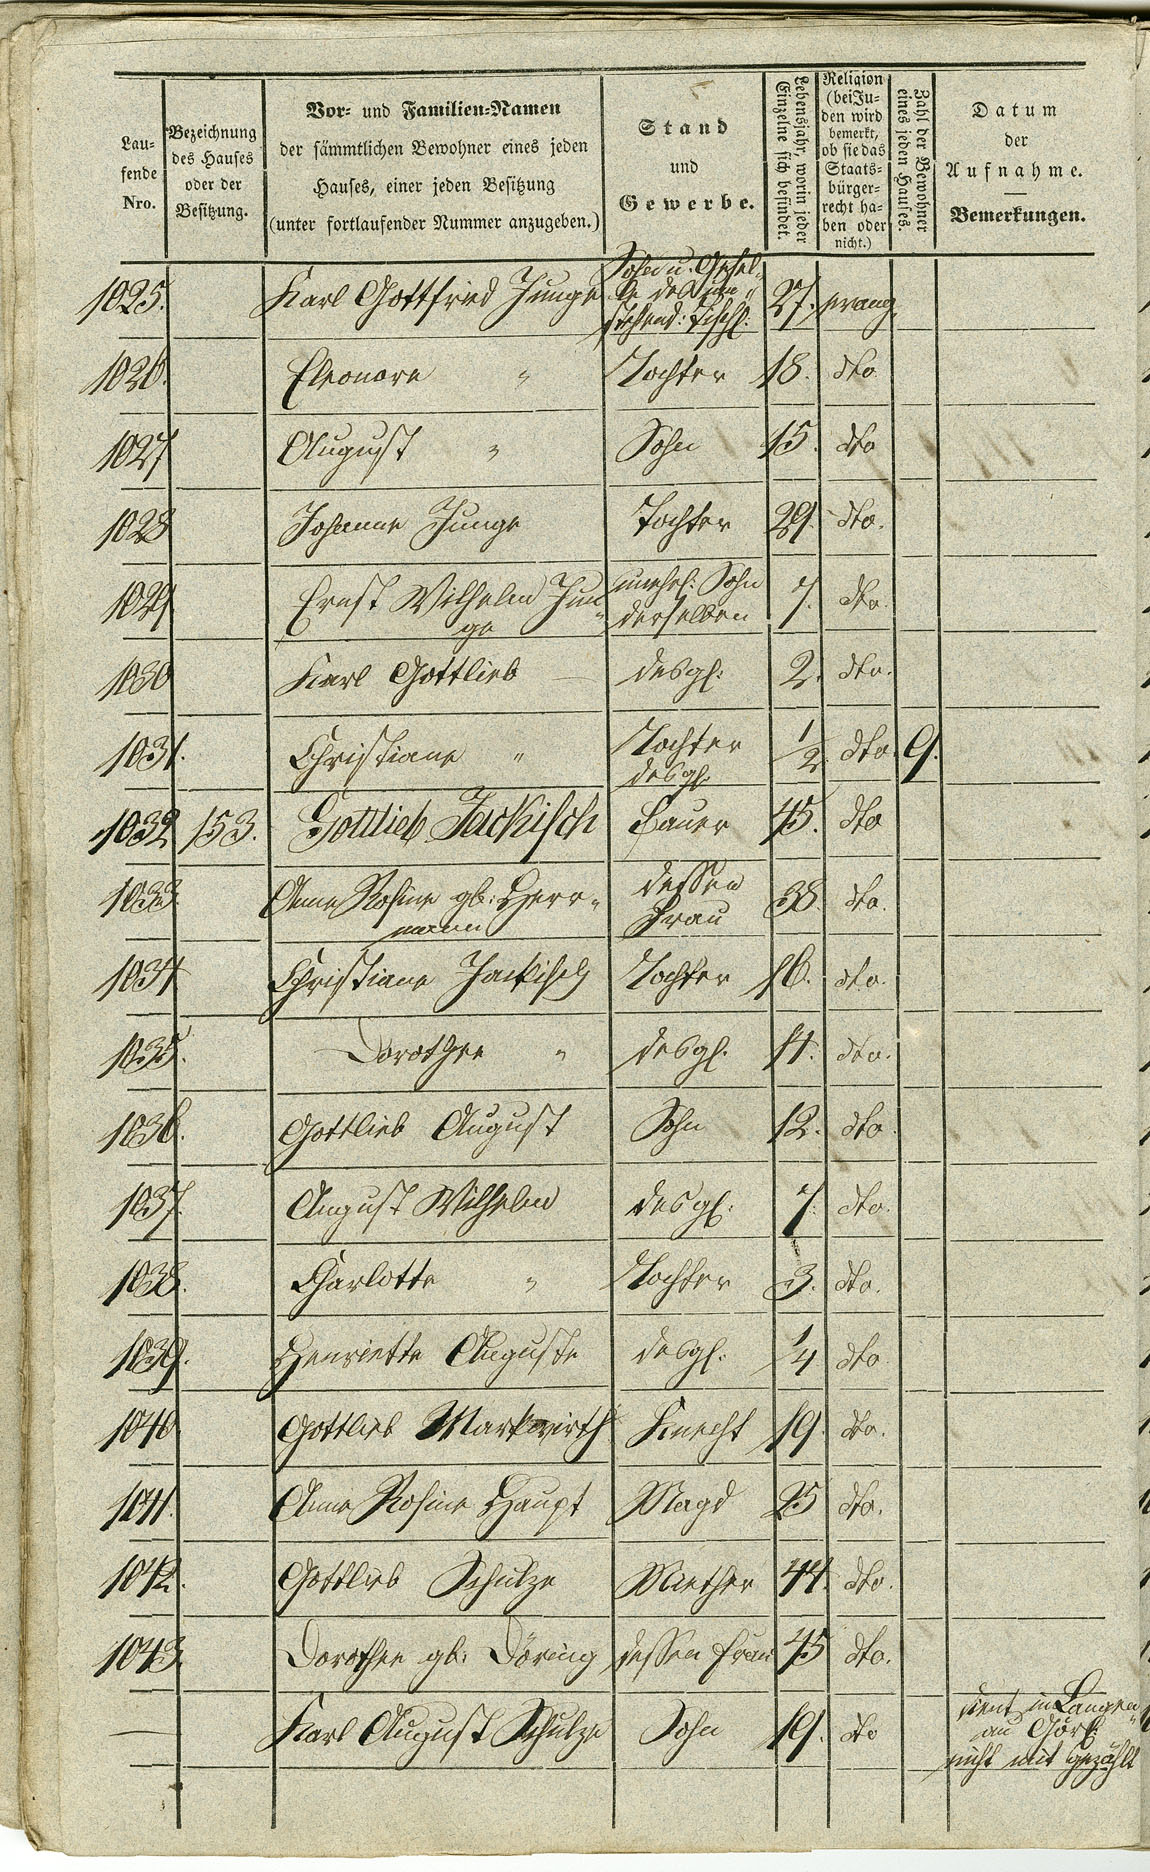 Lau-
fende
Nro.
Bezeichnung
des Hauses
oder der
Besitzung.
Vor- und Familien-Namen
der sämmtlichen Bewohner eines jeden
Hauses, einer jeden Besitzung
(unter fortlaufender Nummer anzugeben.)
Stand
und
Gewerbe.
Lebensjahr, worin jeder
Einzelne sich befindet.
Religion
(bei Ju-
den wird
bemerkt,
ob sie das
Staats-
bürger-
recht ha-
ben oder
nicht.)
Zahl der Bewohner
eines jeden Hauses.
Datum
der
Aufnahme.
Bemerkungen.
1025. Karl Gottfried Junge Sohn u. Gesel- 27.
1026. Eleonore " Tochter 18. dto
1027 August " Sohn 15. dto
1028 Johanne Junge Tochter 29. dto.
1029 Ernst Wilhelm Jun- unehel: Sohn 7. dto.
ge derselben
1030 Karl Gottlieb desgl: 2. dto.
1031. Christiane " Tochter 1/2 dto 9.
desgl:
1032 153. Gottlieb Jackisch Bauer 45. dto
1033. Anne Rosine gb: Herr- dessen 38. dto.
mann Frau
1034 Christiane Jackisch Tochter 16. dto.
1035. Dorothee " desgl. 14. dto.
1036. Gottlieb August Sohn 12. dto
1037. August Wilhelm desgl: 7. dto.
1038. Charlotte " Tochter 3. dto.
1039. Henriette Auguste desgl: 1/4 dto
1040 Gottlieb Markwirth Knecht 19. dto.
1041. Anne Rosine Haupt Magd 25 dto.
1042. Gottlieb Schulze Miether 44. dto.
1043. Dorothee gb: Döring dessen Frau 45 dto.
Karl August Schulze Sohn 19. dto
dient in Langen-
au Görl:
nicht mit gezählt